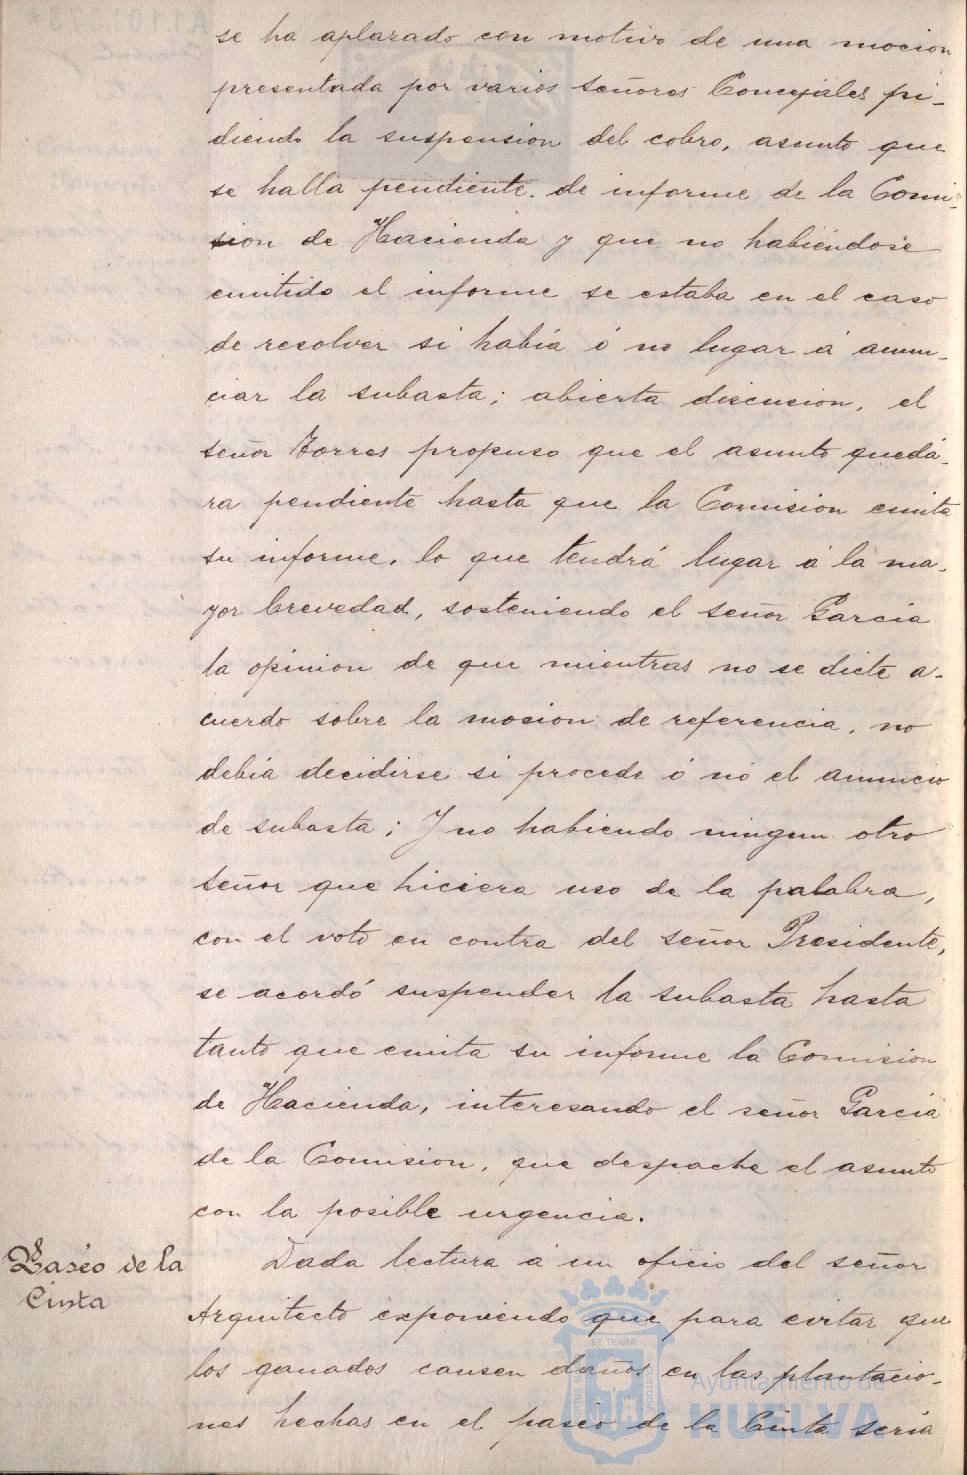 se ha aplazado con motivo de una mocion
presentada por varios señores Concejales pi-
diendo la suspension del cobro, asunto que
se halla pendiente de informe de la Comi-
sion de Hacienda y que no habiéndose
emitido el informe se estaba en el caso
de resolver si había ó no lugar á anun-
ciar la subasta; abierta discusion, el
señor Torres propuso que el asunto quedá-
ra pendiente hasta que la Comision emita
su informe, lo que tendrá lugar á la ma-
yor brevedad, sosteniendo el señor Garcia
la opinion de que mientras no se dicte a-
cuerdo sobre la mocion de referencia, no
debía decidirse si procede ó nó el anuncio
de subasta; Y no habiendo ningun otro
señor que hiciera uso de la palabra,
con el voto en contra del señor Presidente,
se acordó suspender la subasta hasta
tanto que emita su informe la Comision
de Hacienda, interesando el señor Garcia
de la Comision, que despache el asunto
con la posible urgencia.
Paséo de la
Cinta
Dada lectura á un oficio del señor
Arquitecto exponiendo que para evitar que
los ganados causen daños en las plantacio-
nes hechas en el paséo de la Cinta sería
Ayuntamiento de
HUELVA